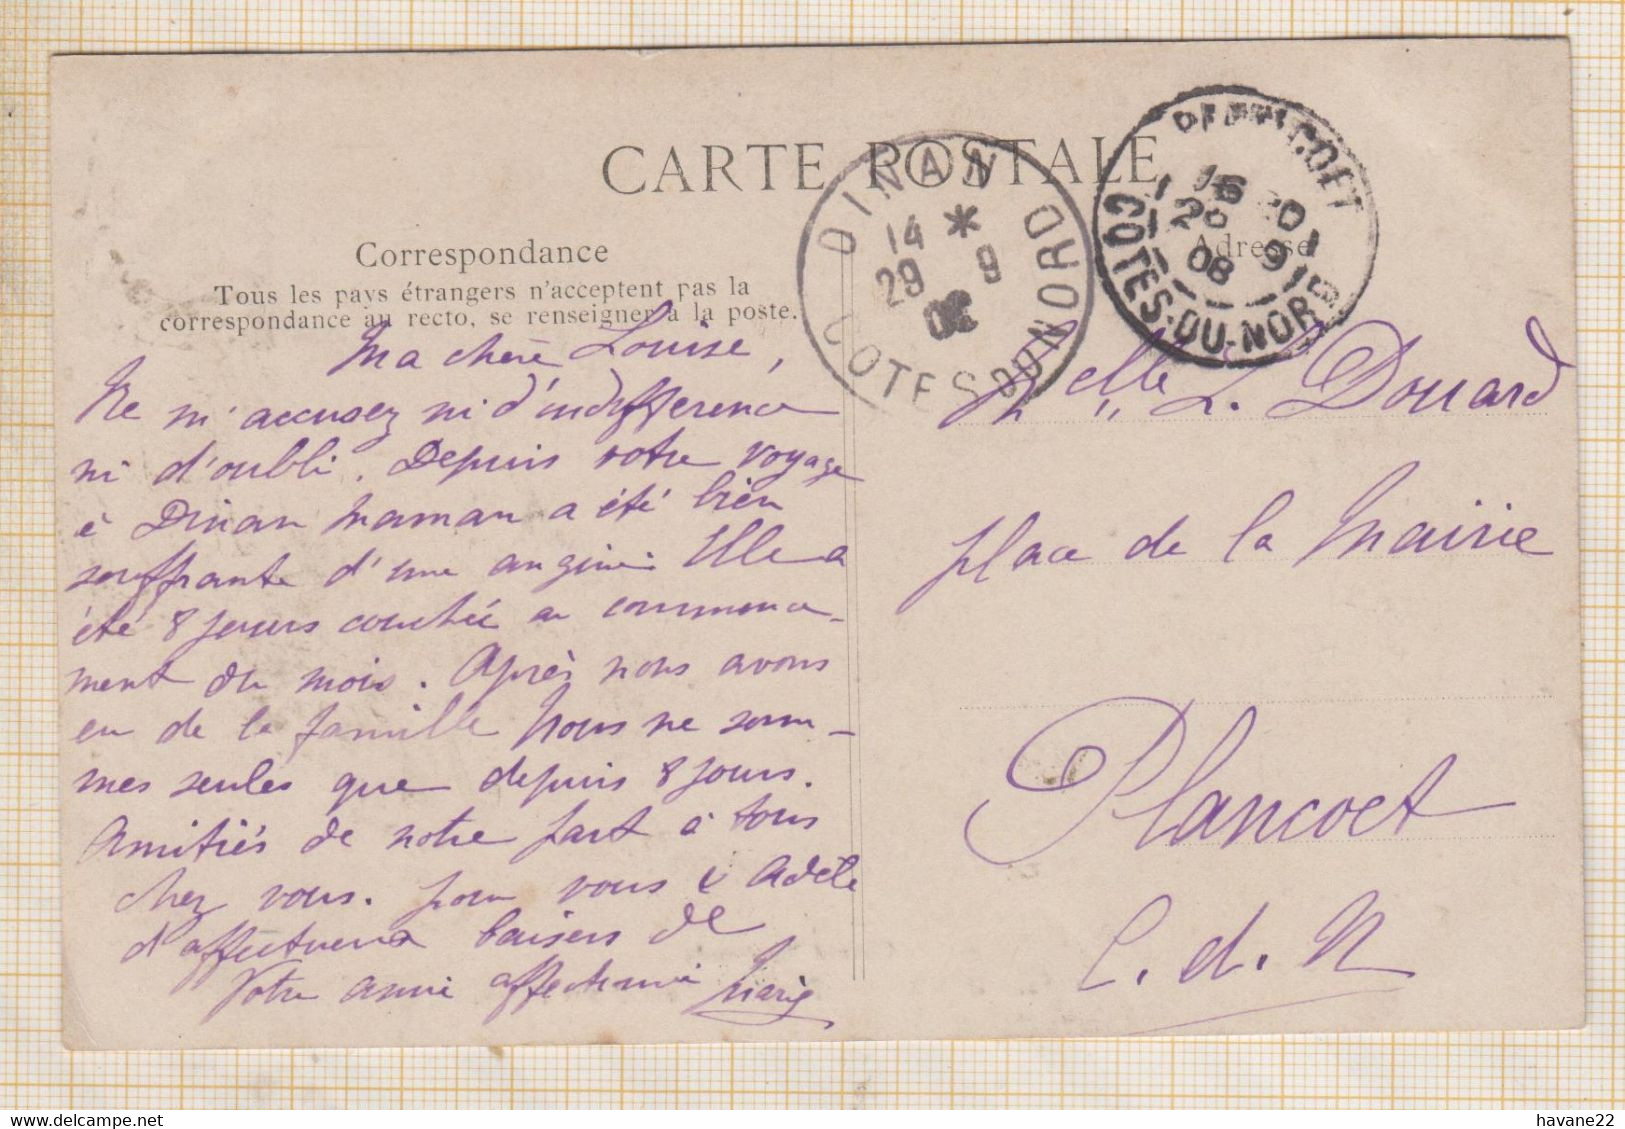 CARTE POSTALE
Correspondance
Tous les pays étrangers n'acceptent pas la
correspondance au recto, se renseigner à la poste.
Adresse
DINAN
14 *
29 9
08
COTES DU NORD
16 20
9
08
COTES-DU-NORD
Ma chère Louise,
Ne m'accusez ni d'indifférence
ni d'oubli. Depuis votre voyage
à Dinan maman a été bien
souffrante d'une angine. Elle a
été 8 jours couchée au commence-
ment du mois. Après nous avons
eu de la famille nous ne som-
mes seules que depuis 8 jours.
Amitiés de notre part à tous
chez vous. pour vous & Adèle
d'affectueux baisers de
Votre amie affectionnée Marie
Melle L. Douard
place de la Mairie
Plancoet
C. d. N
havane22